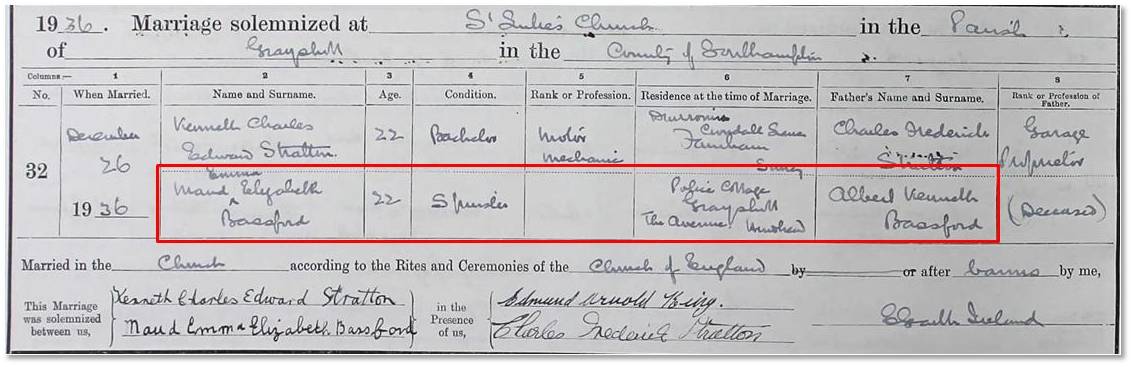 1936. Marriage solemnized at St Luke's Church in the Parish
of Grayshott in the County of Southampton
Columns:— 1 2 3 4 5 6 7 8
No. When Married. Name and Surname. Age. Condition. Rank or Profession. Residence at the time of Marriage. Father's Name and Surname. Rank or Profession of Father.
32
December
26
1936
Kenneth Charles
Edward Stratton
22
Bachelor
Motor
mechanic
Farnham
Surrey
Charles Frederick
Stratton
Garage
Proprietor
Emma
Maud ^ Elizabeth
Bassford
22
Spinster
Police Cottage
Grayshott
The Avenue
Albert Kenneth
Bassford
(Deceased)
Married in the Church according to the Rites and Ceremonies of the Church of England by or after banns by me,
This Marriage was solemnized between us,
Kenneth Charles Edward Stratton
Maud Emma Elizabeth Bassford
in the Presence of us,
Edmund Arnold King.
Charles Frederick Stratton
Ireland